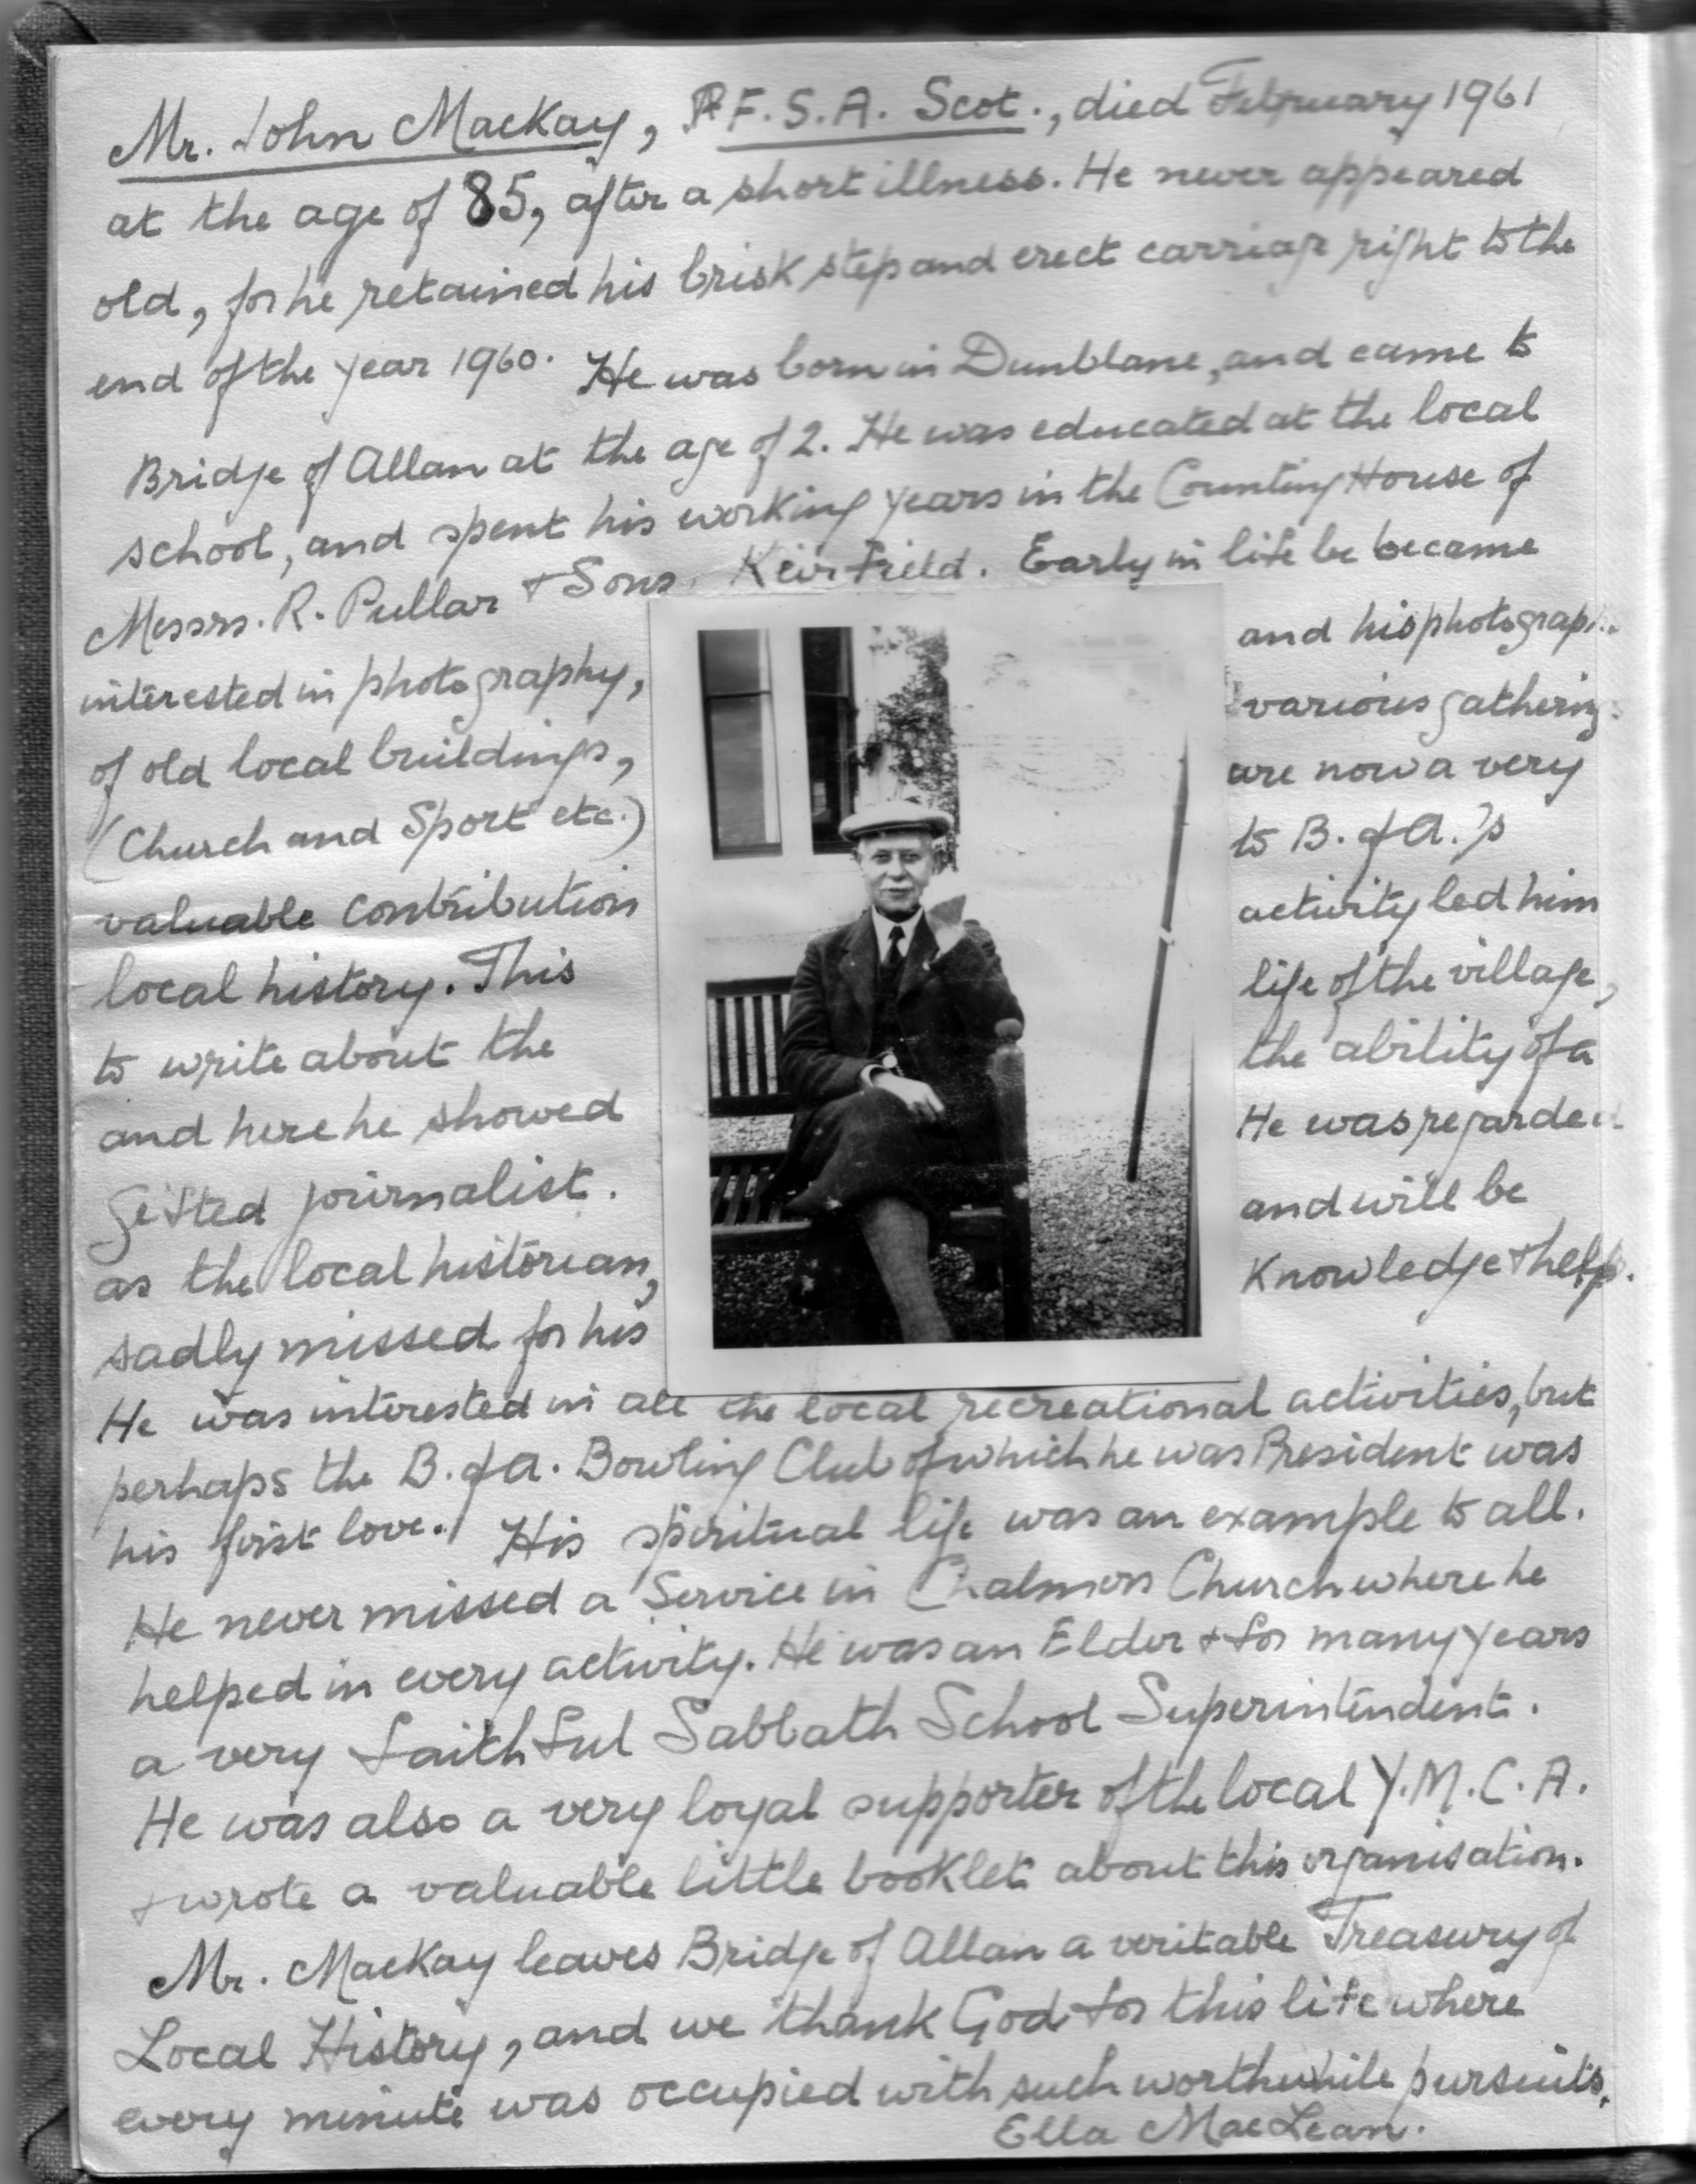 Mr. John MacKay, F.S.A. Scot., died February 1961
at the age of 85, after a short illness. He never appeared
old, for he retained his brisk step and erect carriage right to the
end of the year 1960. He was born in Dunblane, and came to
Bridge of Allan at the age of 2. He was educated at the local
school, and spent his working years in the Counting House of
Messrs. R. Pullar & Sons, Keirfield. Early in life be became
interested in photography, and his photographs
of old local buildings, various gatherings
(Church and Sport etc.) are now a very
valuable contribution to B. of A.'s
local history. This activity led him
to write about the life of the village,
and here he showed the ability of a
gifted journalist. He was regarded
as the local historian, and will be
sadly missed for his Knowledge & help.
He was interested in all the local recreational activities, but
perhaps the B. of A. Bowling Club of which he was President was
his first love. His spiritual life was an example to all.
He never missed a Service in Chalmers Church where he
helped in every activity. He was an Elder & for many years
a very faithful Sabbath School Superintendent.
He was also a very loyal supporter of the local Y.M.C.A.
& wrote a valuable little booklet about this organisation.
Mr. MacKay leaves Bridge of Allan a veritable Treasury of
Local History, and we thank God for this life where
every minute was occupied with such worthwhile pursuits.
Ella MacLean.